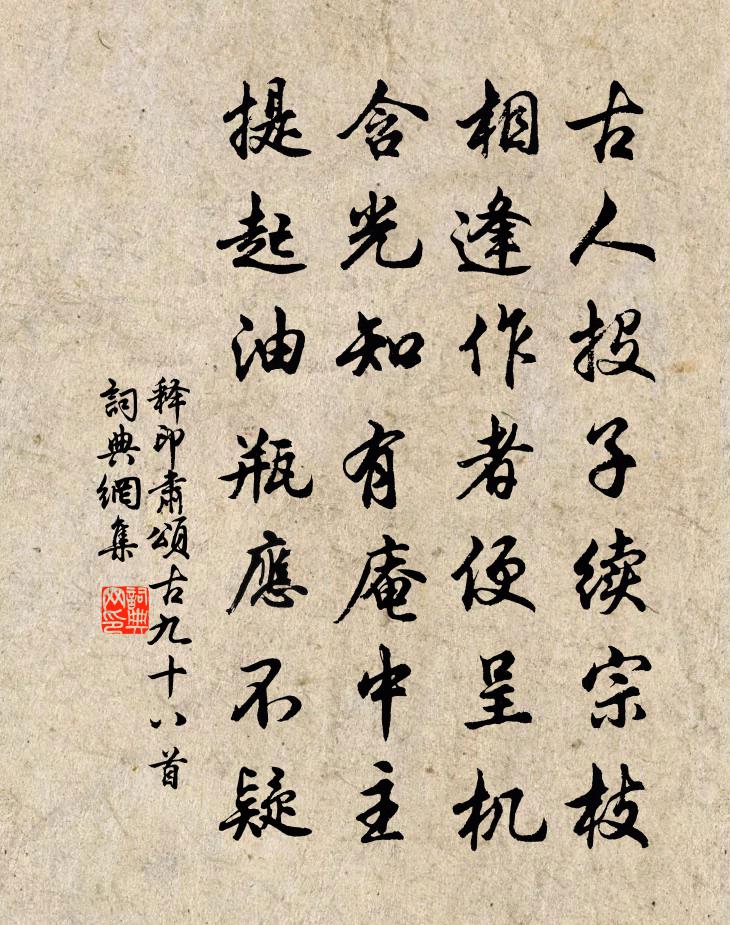 古人投子续宗枝
相逢作者便呈机
含光知有庵中主
提起油瓶應不疑
释印肃頌古九十八首
詞典網集
詞典网印